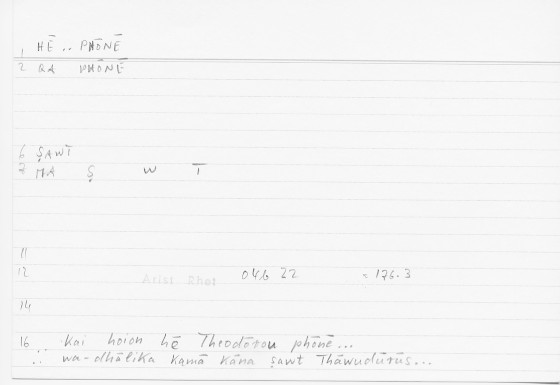 1 HĒ .. PHŌNĒ
2 QA PHŌNĒ
6 ṢAWT
7 MA Ṣ W T
11
12 Arist Rhet 04b 22 = 176.3
14
16 kai hoion hē Theodōrou phōnē...
∴ wa-dhālika kamā kāna ṣawt Thāwudūrūs...